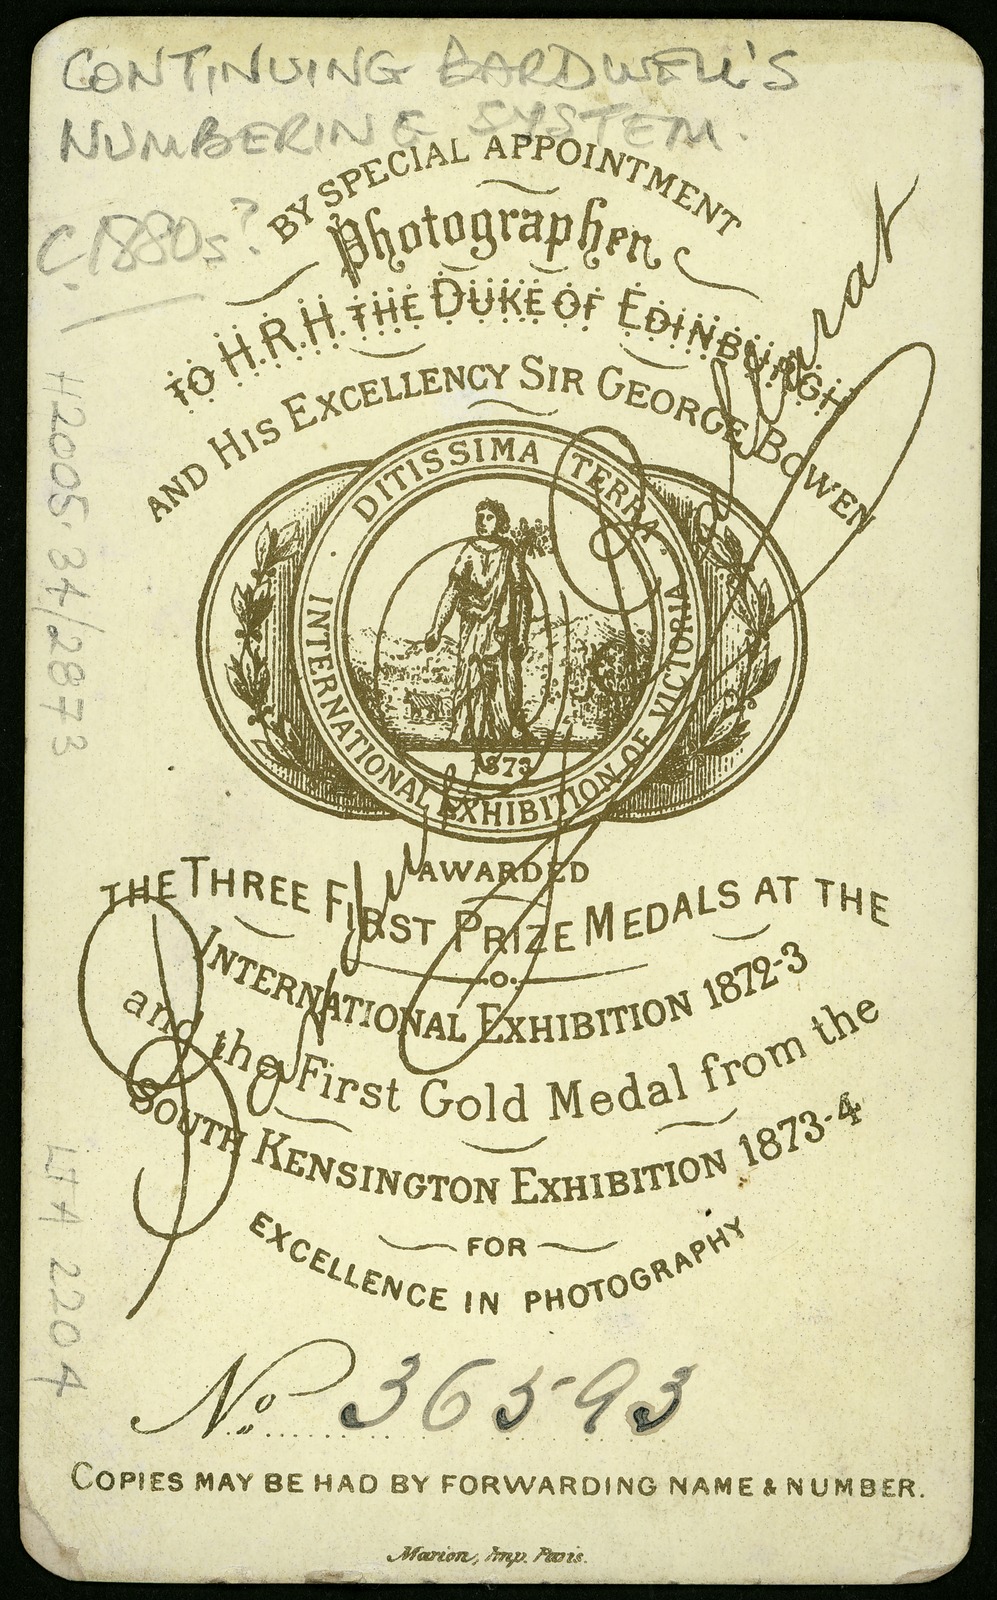 CONTINUING BARDWELL'S
NUMBERING SYSTEM.
C. 1880s?
BY SPECIAL APPOINTMENT
Photographer
TO H.R.H. THE DUKE OF EDINBURGH
AND HIS EXCELLENCY SIR GEORGE BOWEN
DITISSIMA TERRA.
INTERNATIONAL EXHIBITION OF VICTORIA
1873
AWARDED
THE THREE FIRST PRIZE MEDALS AT THE
INTERNATIONAL EXHIBITION 1872-3
and the First Gold Medal from the
SOUTH KENSINGTON EXHIBITION 1873-4
FOR
EXCELLENCE IN PHOTOGRAPHY
Ballarat
No. 36593
COPIES MAY BE HAD BY FORWARDING NAME & NUMBER.
Marion, Imp. Paris.
H2005.34/2873
LTA 2204